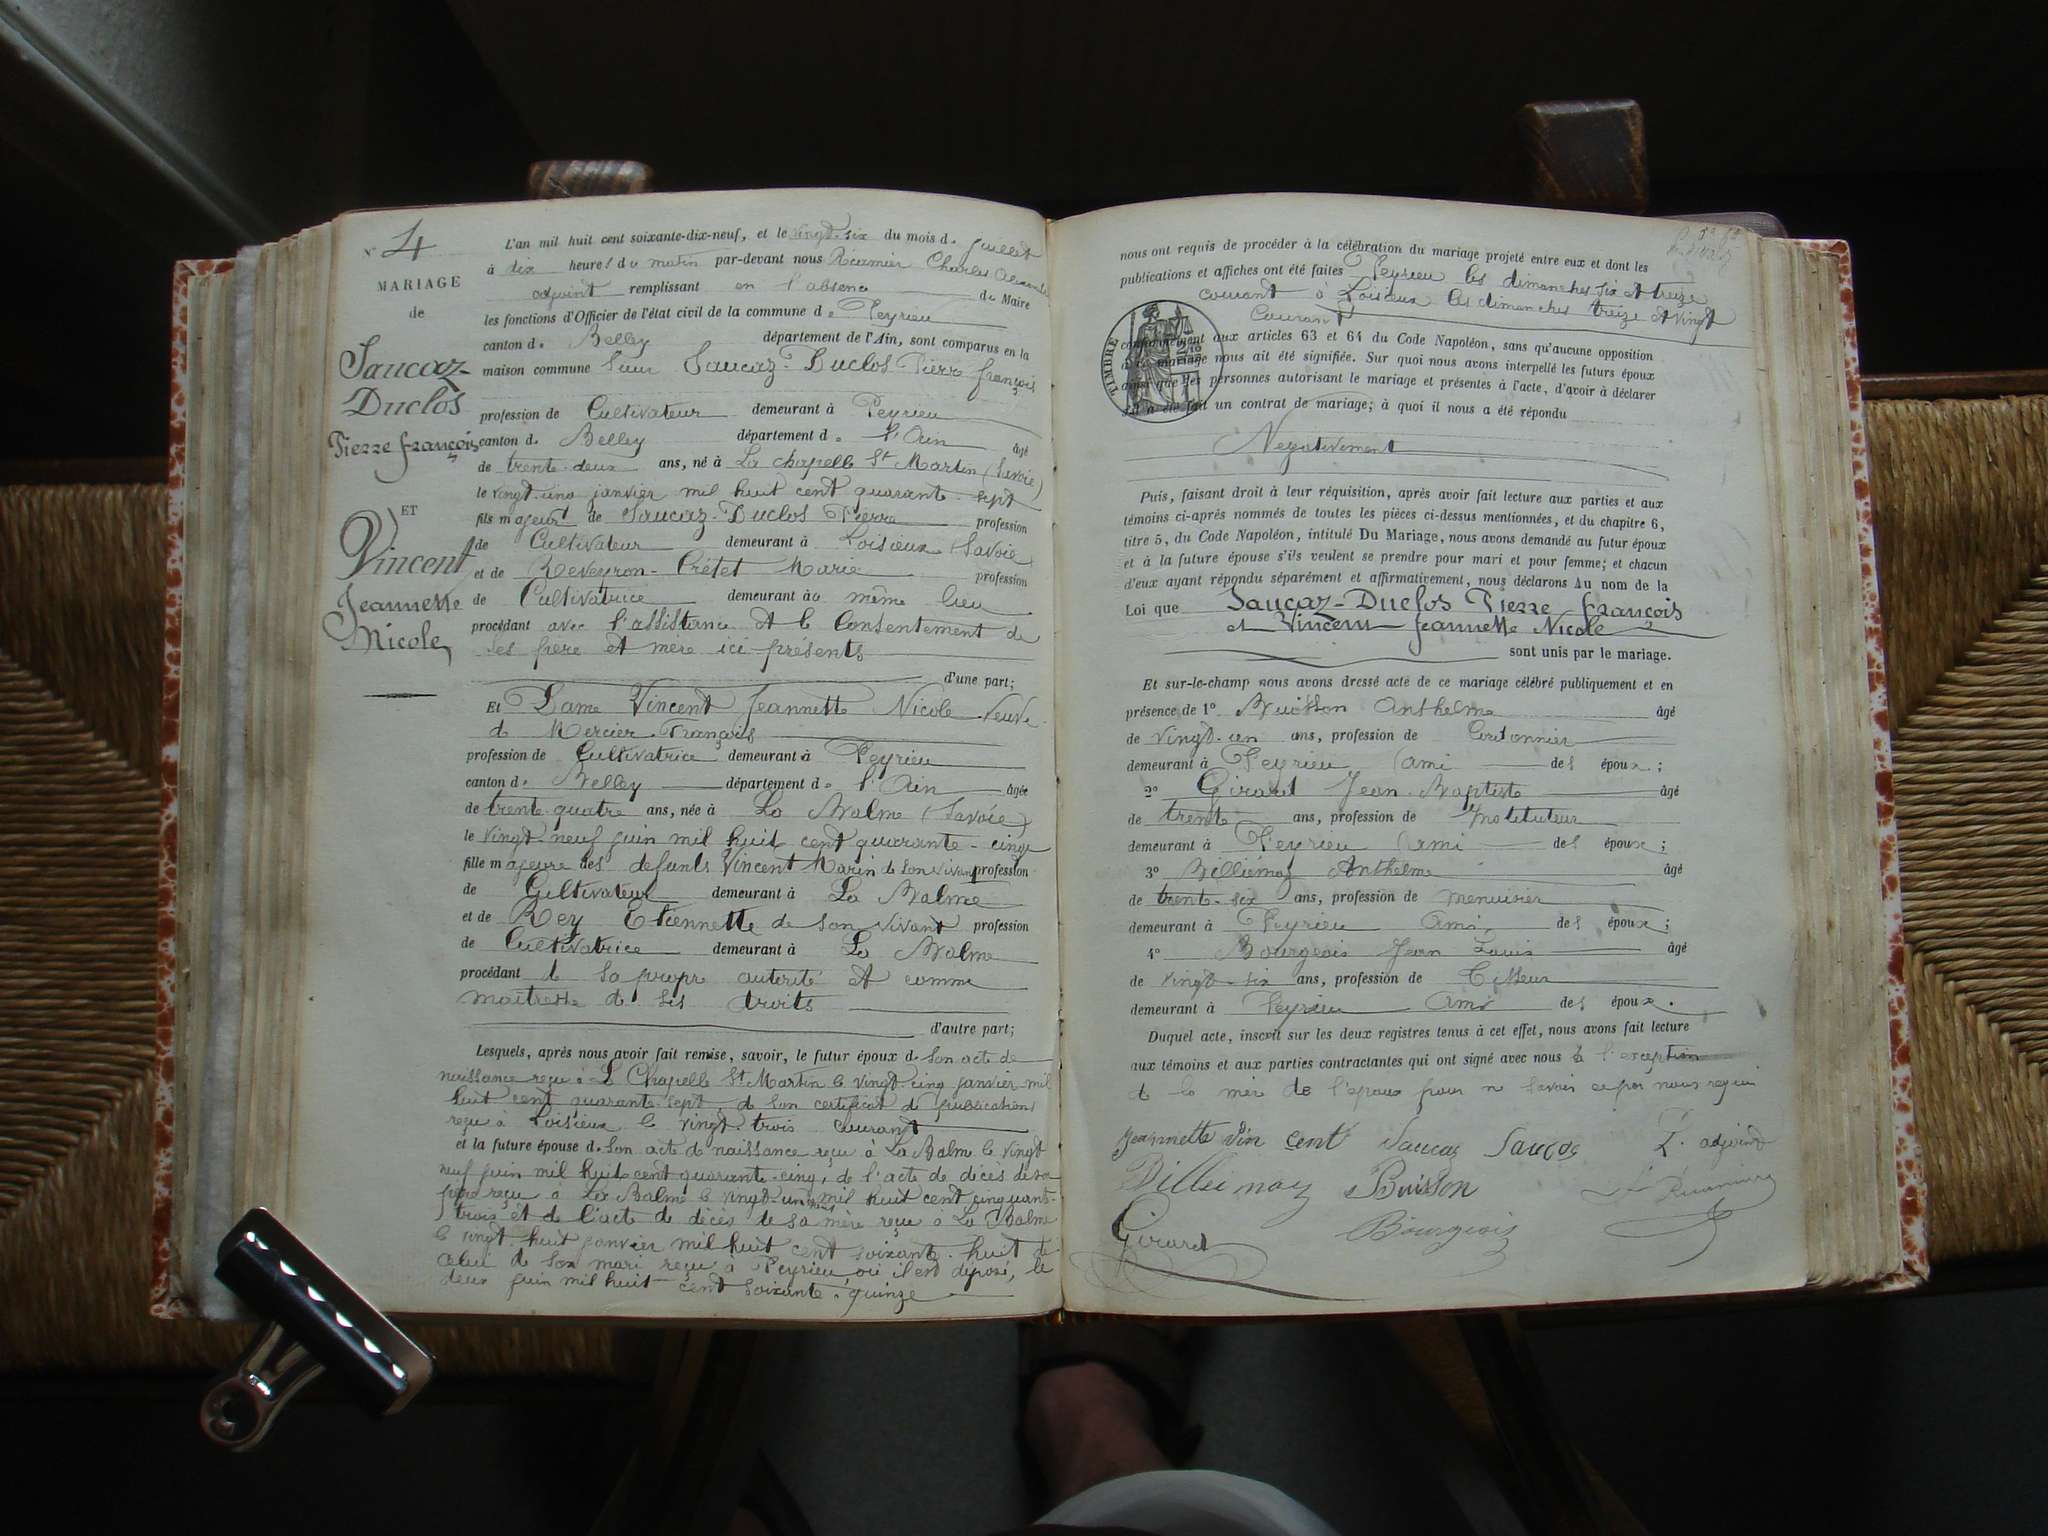 N° 4
MARIAGE
de
Saucaz-
Duclos
Pierre françois
ET
Vincent
Jeannette
Nicole
L'an mil huit cent soixante-dix-neuf, et le vingt-six du mois d. juillet
à dix heures du matin par-devant nous Récamier Charles
adjoint remplissant en l'absence du Maire
les fonctions d'Officier de l'état civil de la commune d. Peyrieu
canton d. Belley département de l'Ain, sont comparus en la
maison commune Saucaz-Duclos Pierre françois
profession de Cultivateur demeurant à Peyrieu
canton d. Belley département d. l'Ain âgé
de trente-deux ans, né à La chapelle St Martin (Savoie)
le vingt-cinq janvier mil huit cent quarante-sept
fils majeur de Saucaz-Duclos Pierre profession
de Cultivateur demeurant à Loisieux Savoie
et de Reveyron-Crétet Marie profession
de Cultivatrice demeurant au même lieu
procédant avec l'assistance et le Consentement de
ses père et mère ici présents
d'une part;
Et Dame Vincent Jeannette Nicole Veuve
de Mercier François
profession de Cultivatrice demeurant à Peyrieu
canton d. Belley département d. l'Ain âgée
de trente-quatre ans, née à La Balme (Savoie)
le vingt-neuf juin mil huit cent quarante-cinq
fille majeure des défunts Vincent Marin de son vivant profession
de Cultivateur demeurant à La Balme
et de Rey Etiennette de son vivant profession
de Cultivatrice demeurant à La Balme
procédant de sa propre autorité et comme
maitresse de ses droits
d'autre part;
Lesquels, après nous avoir fait remise, savoir, le futur époux d. son acte de
naissance reçu à La Chapelle St Martin le vingt-cinq janvier mil
huit cent quarante-sept, de son certificat de publication
reçu à Loisieux le vingt-trois courant
et la future épouse d. son acte de naissance reçu à La Balme le vingt
neuf juin mil huit cent quarante-cinq, de l'acte de décès de son
père reçu à La Balme le vingt-un mil huit cent cinquante-
trois et de l'acte de décès de sa mère reçu à La Balme
le vingt-huit janvier mil huit cent soixante-huit
celui de son mari reçu à Peyrieu où il est déposé, le
deux juin mil huit cent soixante-quinze
nous ont requis de procéder à la célébration du mariage projeté entre eux et dont les
publications et affiches ont été faites Peyrieu les dimanches six et treize
courant à Loisieux les dimanches treize et vingt
Courant
TIMBRE
conformément aux articles 63 et 64 du Code Napoléon, sans qu'aucune opposition
à ce mariage nous ait été signifiée. Sur quoi nous avons interpellé les futurs époux
ainsi que les personnes autorisant le mariage et présentes à l'acte, d'avoir à déclarer
s'il a été fait un contrat de mariage; à quoi il nous a été répondu
Négativement
Puis, faisant droit à leur réquisition, après avoir fait lecture aux parties et aux
témoins ci-après nommés de toutes les pièces ci-dessus mentionnées, et du chapitre 6,
titre 5, du Code Napoléon, intitulé Du Mariage, nous avons demandé au futur époux
et à la future épouse s'ils veulent se prendre pour mari et pour femme; et chacun
d'eux ayant répondu séparément et affirmativement, nous déclarons Au nom de la
Loi que Saucaz-Duclos Pierre françois
et Vincent Jeannette Nicole
sont unis par le mariage.
Et sur-le-champ nous avons dressé acte de ce mariage célébré publiquement et en
présence de 1° Buisson Anthelme âgé
de vingt-un ans, profession de Cordonnier
demeurant à Peyrieu Ami des époux;
2° Girard Jean-Baptiste âgé
de trente ans, profession de Instituteur
demeurant à Peyrieu Ami des époux;
3° Billiémaz Anthelme âgé
de trente-six ans, profession de menuisier
demeurant à Peyrieu Ami des époux;
4° Bourgeois Jean Louis âgé
de vingt-six ans, profession de Tisseur
demeurant à Peyrieu Ami des époux.
Duquel acte, inscrit sur les deux registres tenus à cet effet, nous avons fait lecture
aux témoins et aux parties contractantes qui ont signé avec nous à l'exception
de la mère de l'époux pour ne savoir ce par nous requis
Jeannette vin cent Saucaz Saucaz L'adjoint
Billiemaz Buisson Récamier
Girard Bourgeois